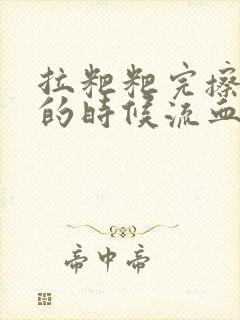 拉粑粑完擦
的时候流血
帝中帝